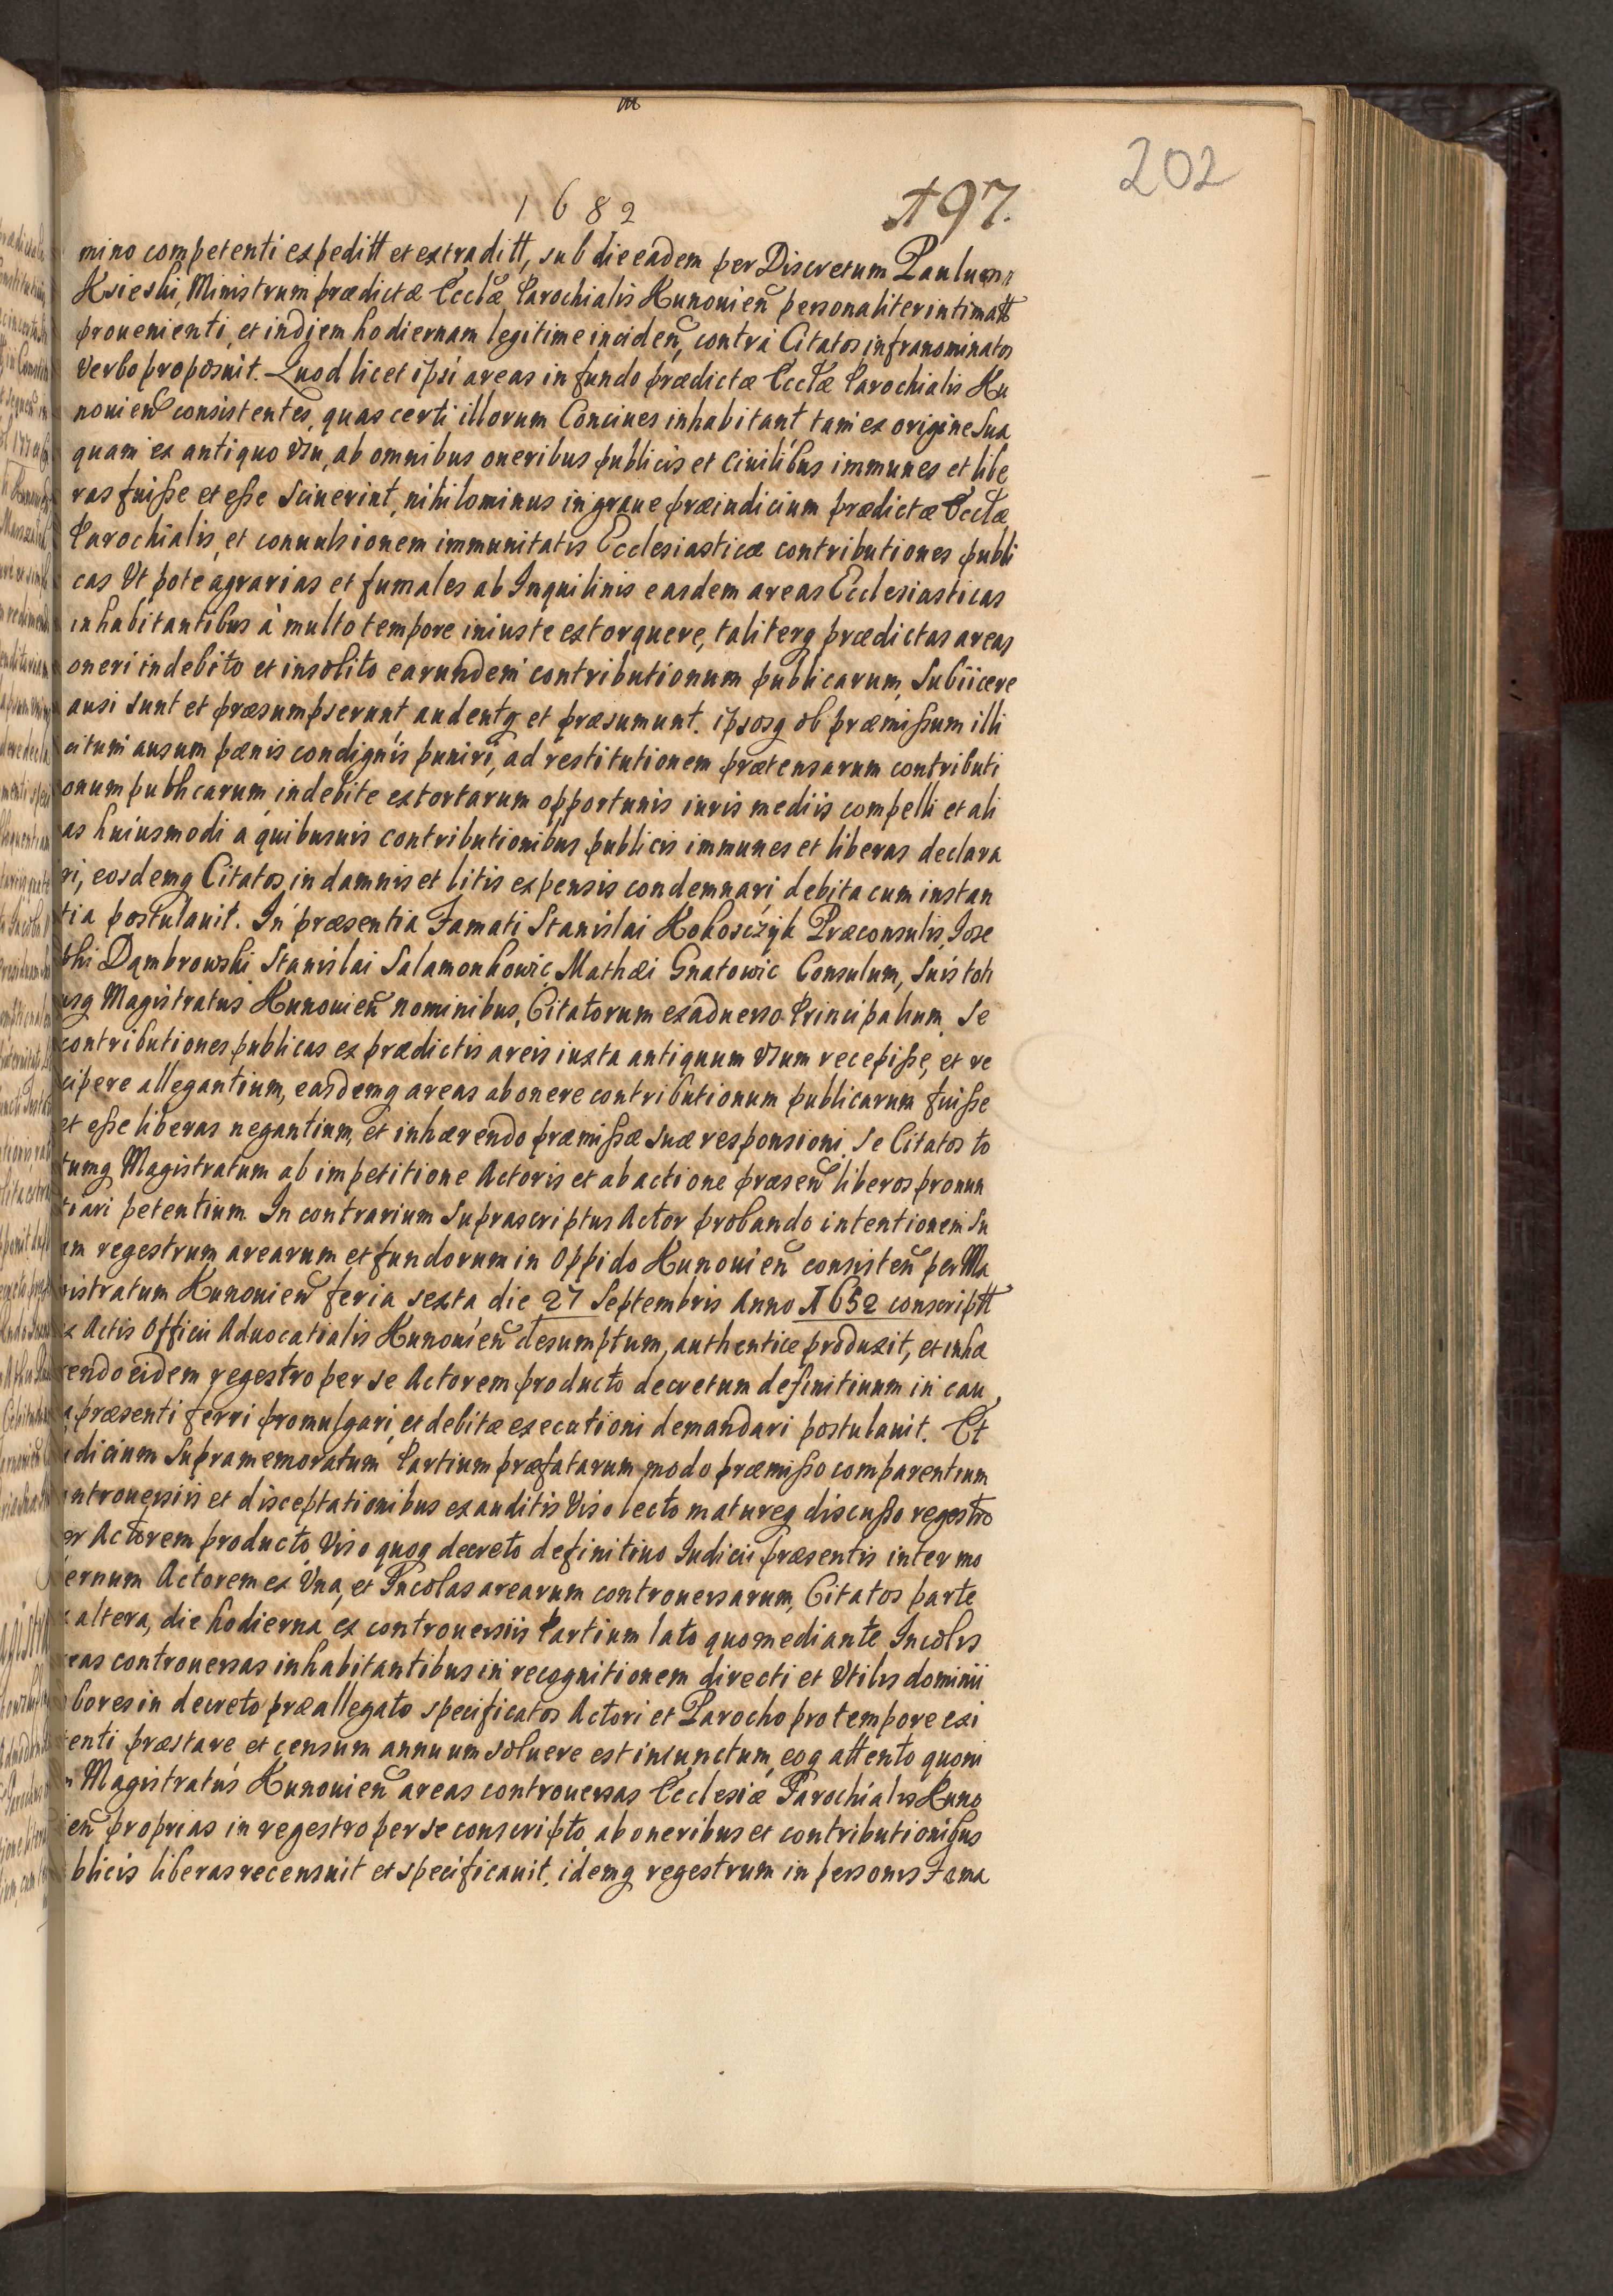 202
1682
197.
mino competenti expeditt et extraditt, sub die eadem per Discretum Paulum
Ksieski, Ministrum prædictæ Eccłæ Parochialis Kunouien̄ personaliter intimatt
prouenienti, et in diem hodiernam legitime inciden̄, contra Citatos infranominatos
Verbo proposuit. Quod licet ipsi areas in fundo prædictæ Eccłæ Parochialis Ku
nouien̄ consistentes, quas certi illorum Conciues inhabitant tam ex origine sua
quam ex antiquo Vsu, ab omnibus oneribus publicis et Ciuilibus immunes et libe
ras fuisse et esse Sciuerint, nihilominus in graue præiudicium prædictæ Eccłæ
Parochialis, et conuulsionem immunitatis Ecclesiasticæ contributiones publi
cas Vt pote agrarias et fumales ab Inquilinis easdem areas Ecclesiasticas
inhabitantibus à multo tempore iniuste extorquere, taliterq prædictas areas
oneri indebito et insolito earundem contributionum publicarum, Subiicere
ausi sunt et præsumpserunt, audentq et præsumunt. ipsosq ob præmissum illi
citum ausum pænis condignis puniri, ad restitutionem prætensarum contributi
onum publicarum indebite extortarum opportunis iuris mediis compelli et ali
as huiusmodi a quibusuis contributionibus publicis immunes et liberas declara
ri, eosdemq Citatos in damnis et litis expensis condemnari debita cum instan
tia postulauit. In præsentia Famati Stanislai Kokosczyk Præconsulis, Jose
phi Dąmbrowski Stanislai Salamonkowic, Mathæi Gnatowic Consulum, suis toti
usq Magistratus Kunouien̄ nominibus, Citatorum exaduerso Principalium, Se
contributiones publicas ex prædictis areis iuxta antiquum Vsum recepisse, et re
cipere allegantium, easdemq areas ab onere contributionum publicarum fuisse
et esse liberas negantium, et inhærendo præmissæ suæ responsioni, Se Citatos to
tumq Magistratum ab impetitione Actoris et ab actione præsen̄ liberos pronun
tiari petentium. In contrarium Suprascriptus Actor probando intentionem Su
am regestrum arearum et fundorum in Oppido Kunouien̄ consisten̄ per Ma
gistratum Kunouien̄ feria sexta die 27 Septembris Anno 1652 conscriptt
ex Actis Officii Aduocatialis Kunouien̄ desumptum, authentice produxit, et inhæ
rendo eidem regestro per se Actorem producto decretum definitiuum in cau
a præsenti ferri promulgari, et debitæ executioni demandari postulauit. Et
udicium Supramemoratum Partium præfatarum modo præmisso comparentium
ontrouersiis et disceptationibus exauditis Viso lecto matureq discusso regestro
per Actorem producto, Viso quoq decreto definitiuo Iudicii præsentis inter mo
ernum Actorem ex Vna, et Incolas arearum controuersarum, Citatos parte
ex altera, die hodierna ex controuersiis Partium lato quo mediante Incolis
reas controuersas inhabitantibus in recognitionem directi et Vtilis dominii
bores in decreto præallegato specificatos Actori et Parocho pro tempore exi
tenti præstare et censum annuum soluere est iniunctum, eoq attento quoni
m Magistratus Kunouien̄ areas controuersas Ecclesiæ Parochialis Kuno
ien̄ proprias in regestro per se conscripto, ab oneribus et contributionibus
blicis liberas recensuit et specificauit, idemq regestrum in personis Fama